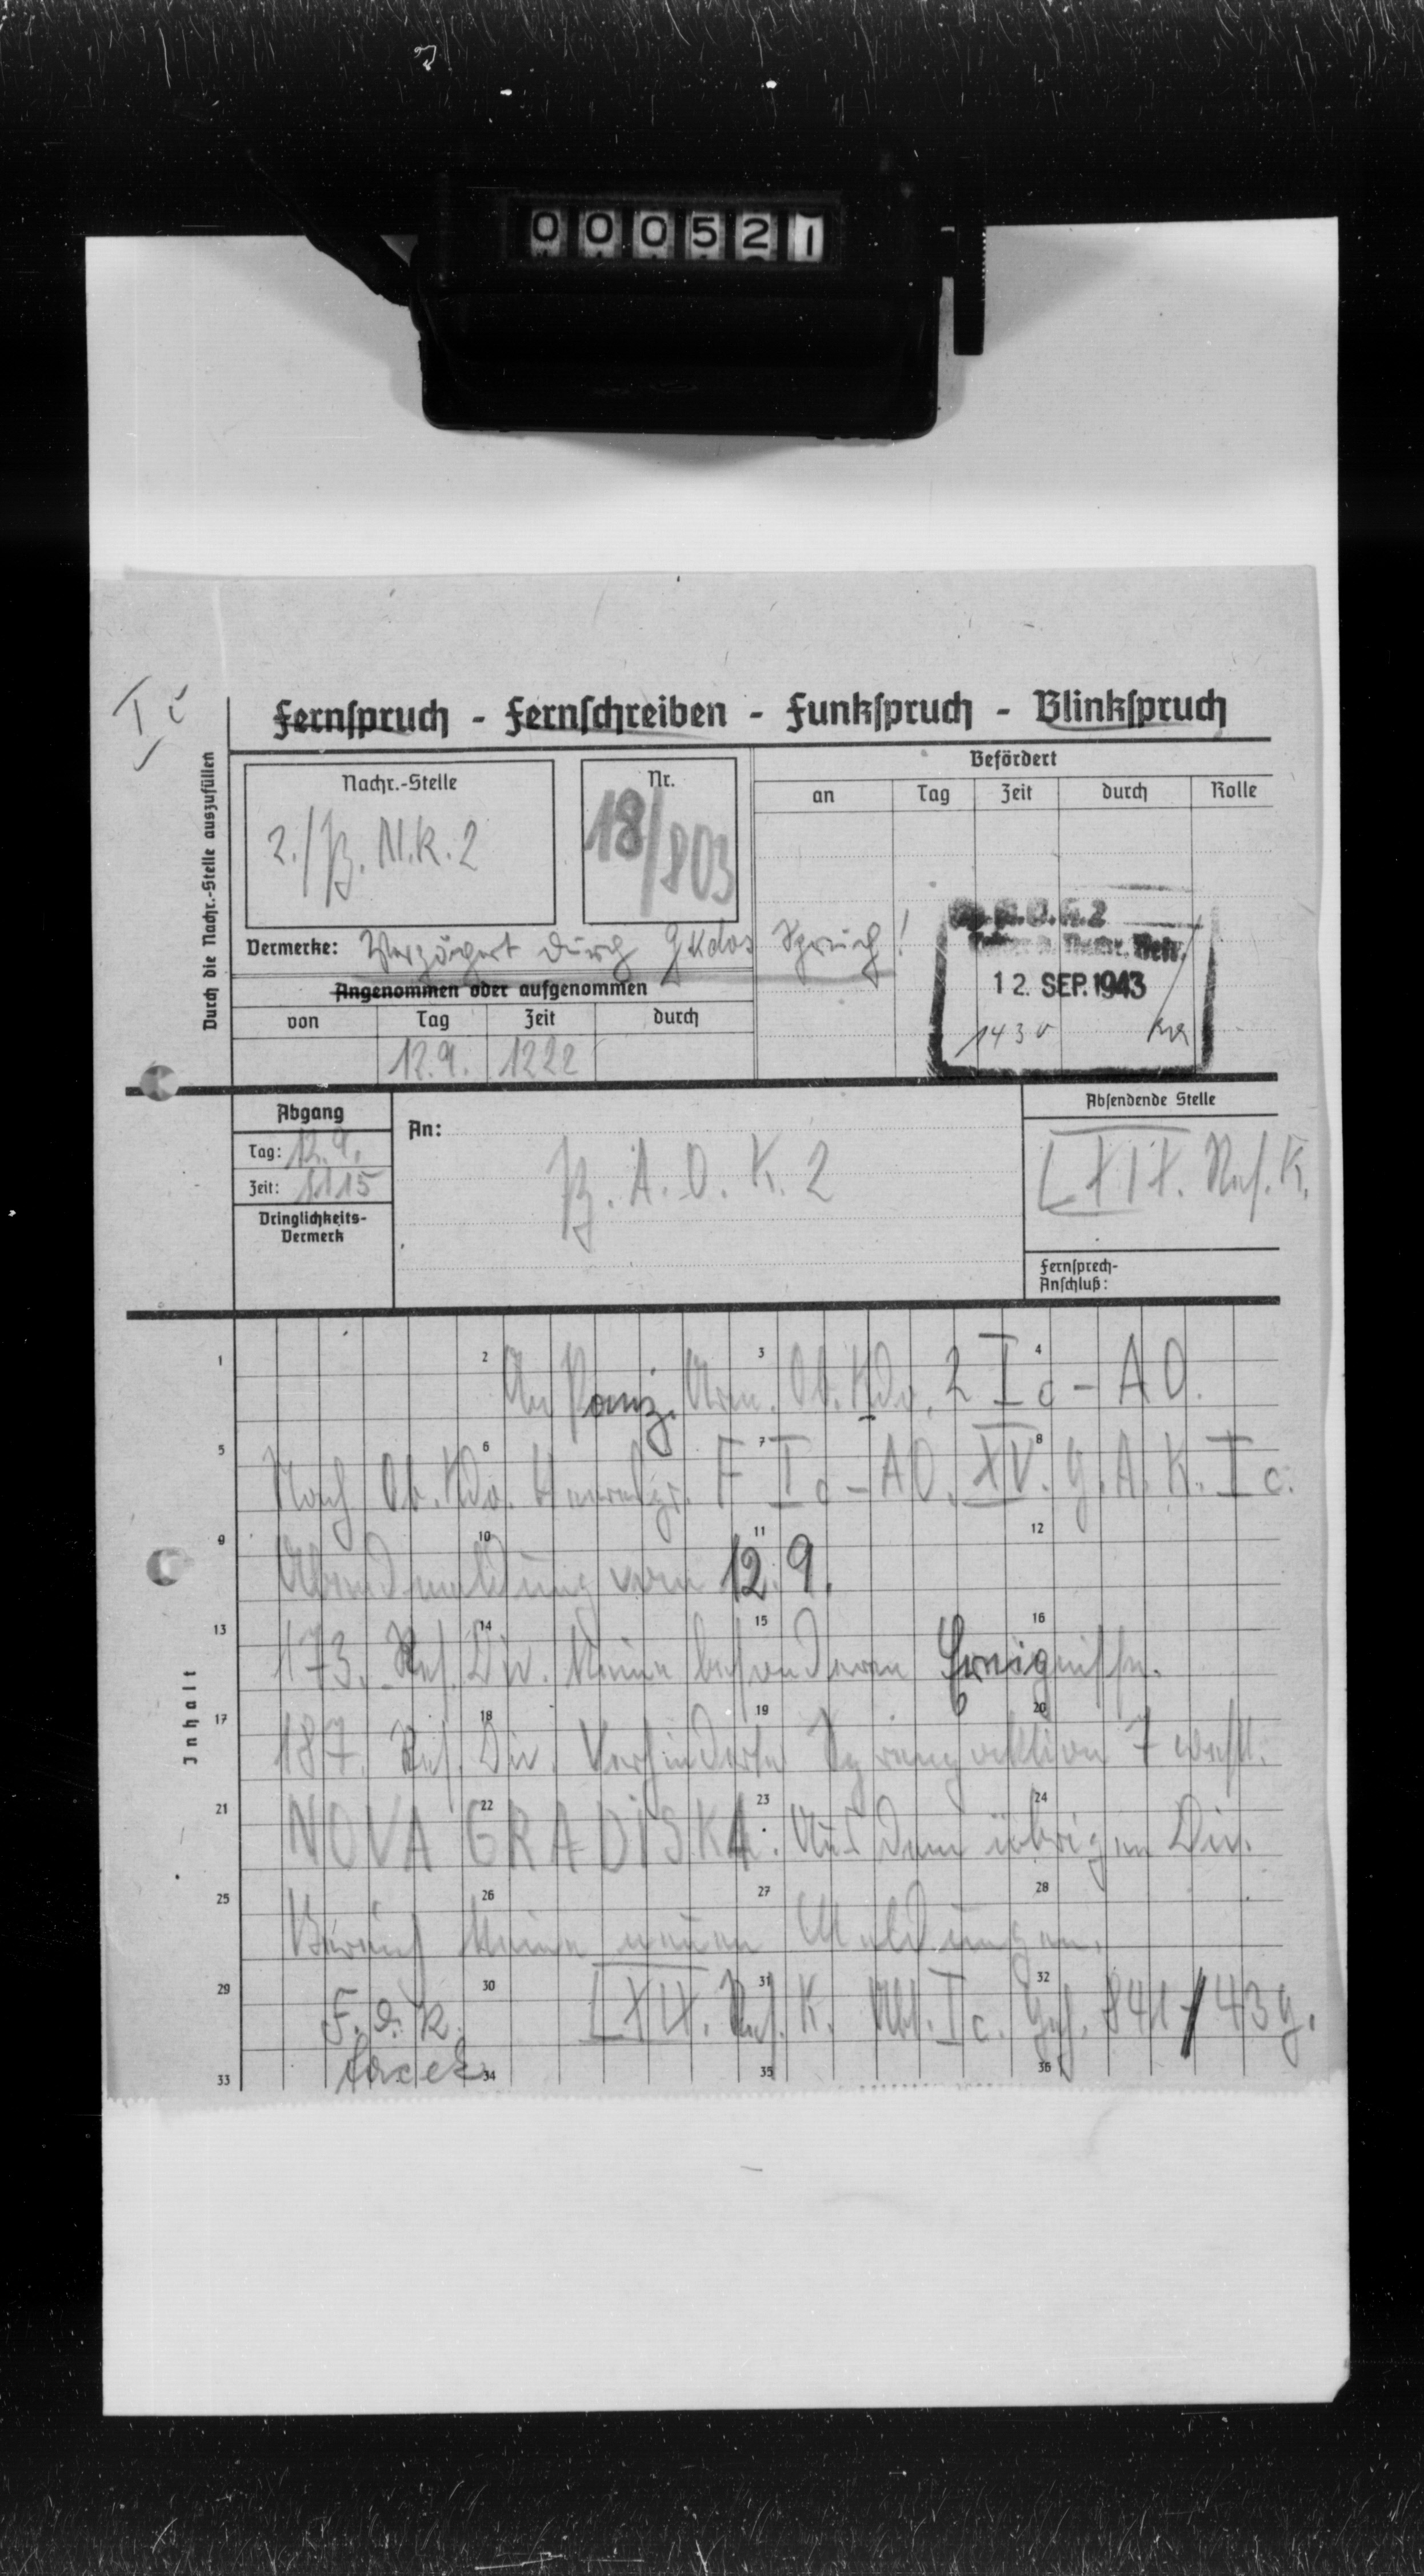 000521
I c
Fernspruch - Fernschreiben - Funkspruch - Blinkspruch
Durch die Nachr.-Stelle auszufüllen
Nachr.-Stelle
2./Pz. N.R. 2
Nr.
18/803
Befördert
an Tag Zeit durch Rolle
Vermerke: Verzögert durch Gkdos Spruch!
12. SEP. 1943
1430
Angenommen oder aufgenommen
von Tag Zeit durch
12.9. 1222
Abgang
Tag: 12.9.
Zeit: 1115
Dringlichkeits-
Vermerk
An:
Pz. A. O. K. 2
Absendende Stelle
LXIX. Res. K.
Fernsprech-
Anschluß:
Inhalt
1 2 3 4
An Panz. Arm. Ob. Kdo. 2 Ic - AO.
5 6 7 8
Nach Ob. Kdo. Heeresgr. F Ic - AO. XV. G. A. K. Ic.
9 10 11 12
Abendmeldung vom 12.9.
13 14 15 16
173. Res. Div. Keine besonderen Ereignisse.
17 18 19 20
187. Res. Div. Verhinderte Sprengaktion 7 westl.
21 22 23 24
NOVA GRADISKA. Aus dem übrigen Div.
25 26 27 28
Bereich keine neuen Meldungen.
29 30 31 32
F. d. R. LXIX. Res. K. Abt. Ic. 841/43 g.
33 34 35 36